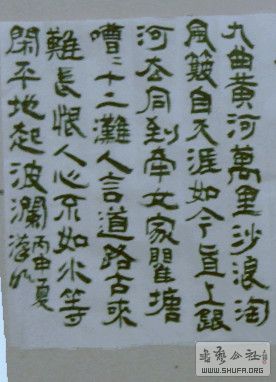 九曲黄河萬里沙浪淘
風簸自天涯如今直上銀
河去同到牽女家瞿塘
嘈〻十二灘人言道路古來
難長恨人心不如水等
閑平地起波瀾
丙申夏
書藝公社
WWW.SHUFA.ORG